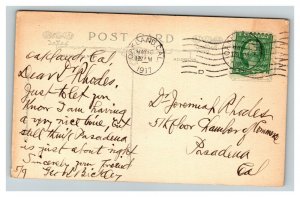 POST CARD
OAKLAND, CAL.
MAY 10
12 M
1917
D
Oakland, Cal
Dear Dr Rhodes,
Just to let you
know I am having
a very nice time, but
still think Pasadena
is just about right
Sincerely your friend
5/9 Geo. N. Bickley
Dr. Jeremiah Rhodes
5th floor Chamber of Commerce
Pasadena
Cal